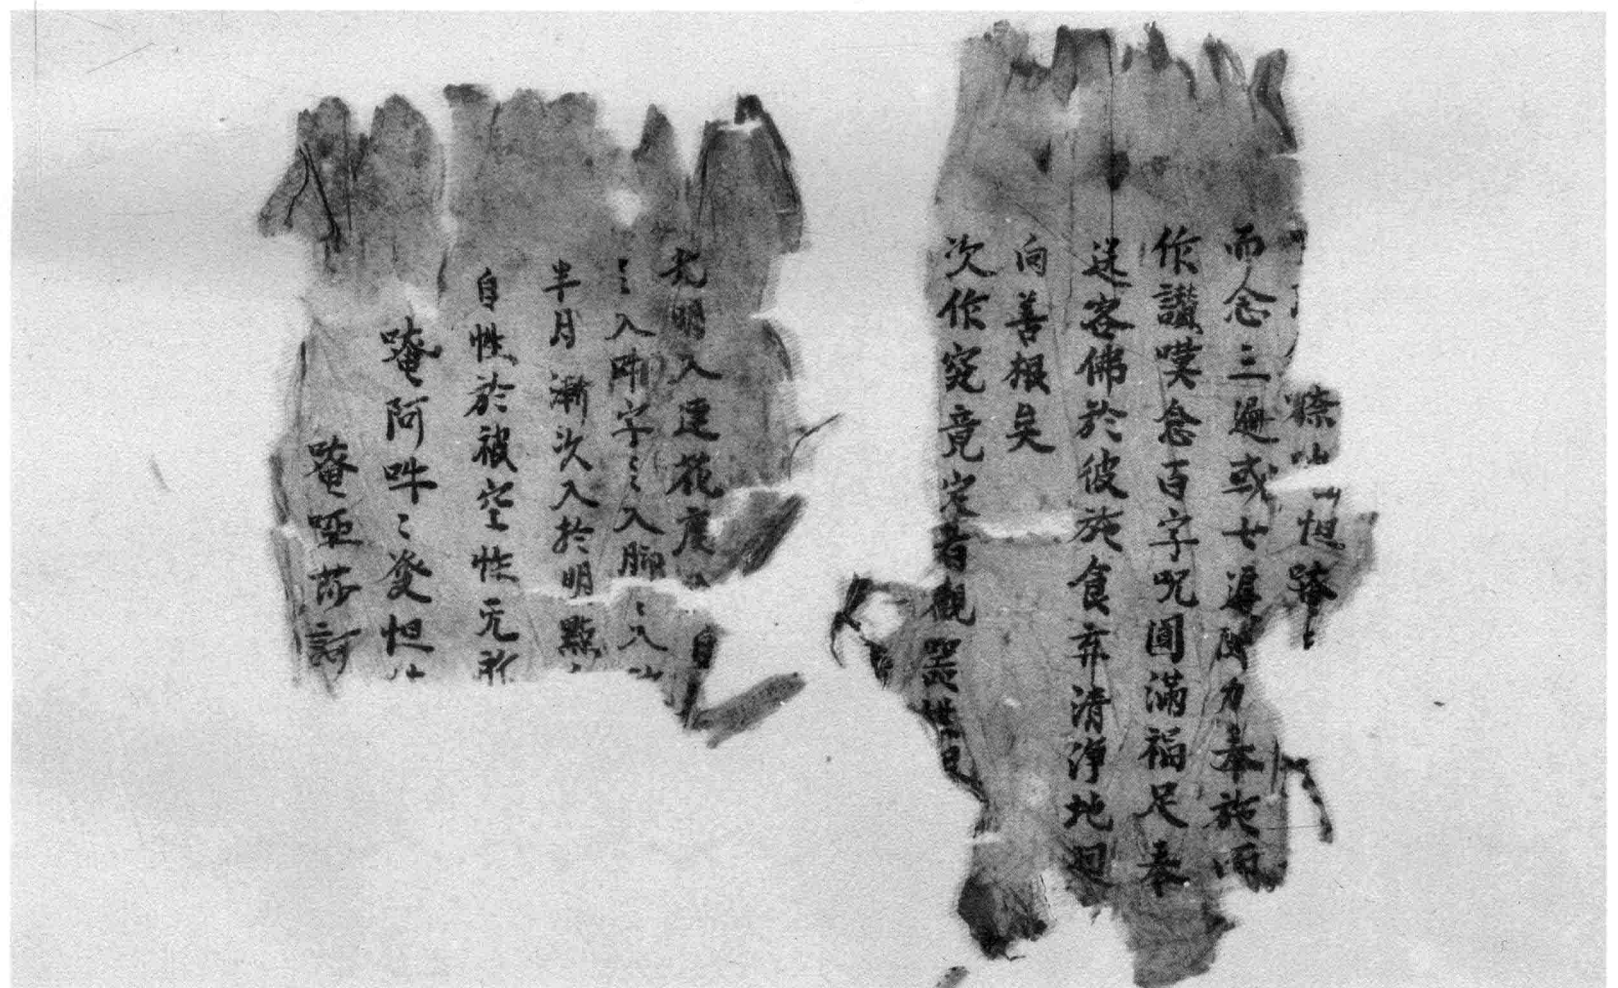 怛
而念三遍或七遍力奉施而
作讃嘆念百字呪圓滿福足奉
送客佛於彼施食弃清淨地廻
向善根矣
次作究竟定者觀器世
光明入蓮花
〻入吽字〻入腳〻入
半月漸次入於明點
自性於彼空性无所
唵阿吽〻癹怛
唵啞莎訶